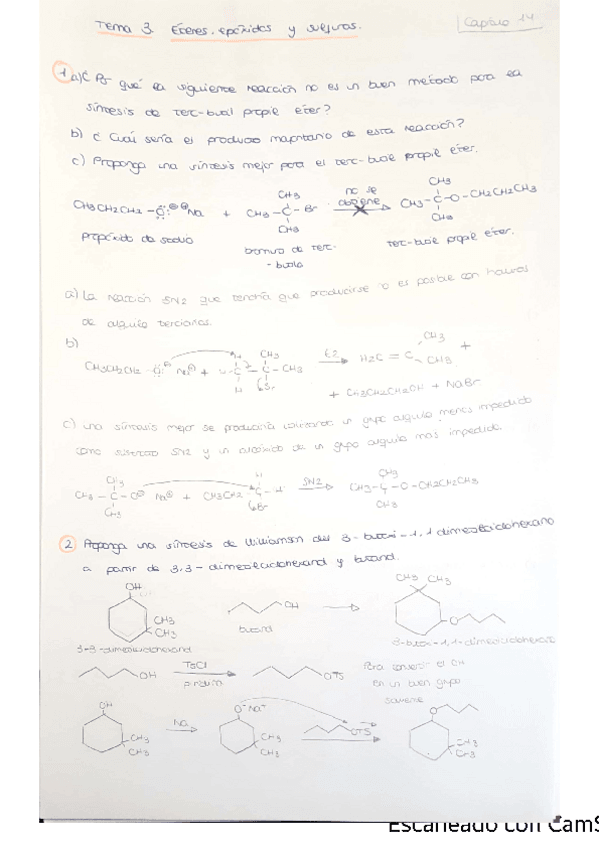 Tema 3. Éteres, epóxidos y sulfuros.
Capítulo 14
1 a) ¿Por qué la siguiente reacción no es un buen método para la
síntesis de terc-butil propil éter?
b) ¿Cuál sería el producto mayoritario de esta reacción?
c) Proponga una síntesis mejor para el terc-butil propil éter.
CH3 no se CH3
CH3CH2CH2 - O:⊖ ⊕Na + CH3 - C - Br obtiene CH3 - C - O - CH2CH2CH3
CH3 CH3
propóxido de sodio bromuro de terc- terc-butil propil éter.
- butilo
a) La reacción SN2 que tendría que producirse no es posible con haluros
de alquilo terciarios.
b)
H CH3 E2 CH3
CH3CH2CH2 - O:⊖ Na⊕ + H - C - C - CH3 H2C = C CH3 +
H Br
+ CH3CH2CH2OH + NaBr
c) Una síntesis mejor se produciría utilizando un grupo alquilo menos impedido
como sustrato SN2 y un alcóxido de un grupo alquilo más impedido.
CH3 H CH3
CH3 - C - O⊖ Na⊕ + CH3CH2 - C - H SN2 CH3 - C - O - CH2CH2CH3
CH3 Br CH3
2 Proponga una síntesis de Williamson del 3-butoxi-1,1-dimetilciclohexano
a partir de 3,3-dimetilciclohexanol y butanol.
OH CH3 CH3
OH
CH3
CH3 butanol O
3-3-dimetilciclohexanol 3-butoxi-1,1-dimetilciclohexano
OH TsCl OTs Para convertir el OH
piridina en un buen grupo
saliente
OH O⁻Na⁺ O
Na OTS
CH3 CH3 CH3
CH3 CH3 CH3
Escaneado con CamS